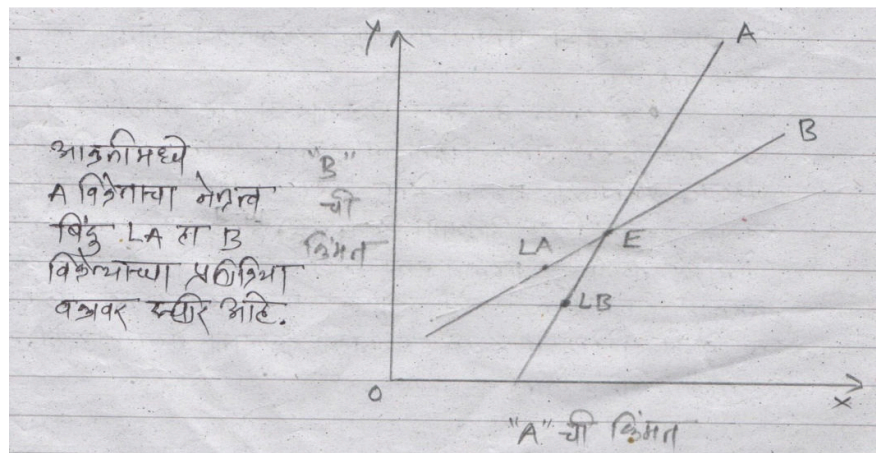 आकृतीमध्ये
A विक्रेत्याचा नेतृत्व
बिंदू LA हा B
विक्रेत्याच्या प्रतिक्रिया
वक्रावर स्थीर आहे.
"B"
ची
किंमत
Y
A
B
LA
E
LB
O
X
"A" ची किंमत